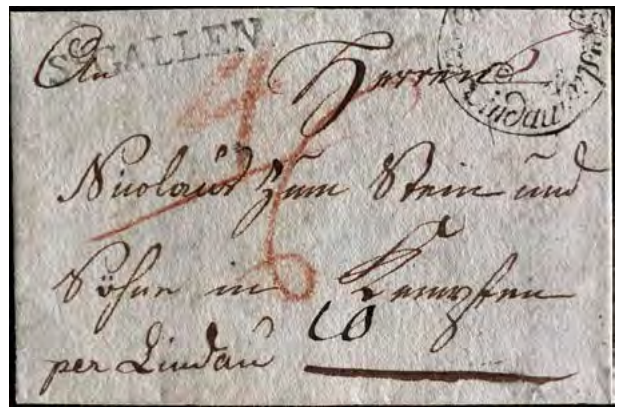 ST GALLEN
An
Herren
Nicolaus zum Stein und
Söhne in Kempten
per Lindau
10
Lindau